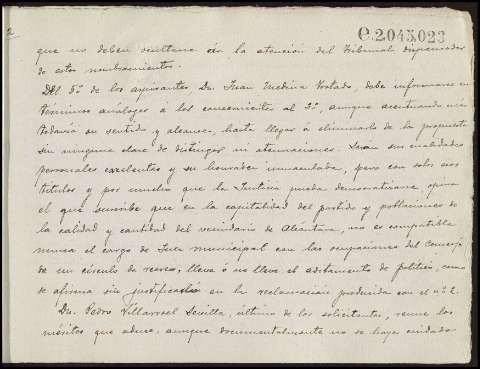 2
C.2.045.023
que no deben ocultarse á la atención del Tribunal dispensador
de estos nombramientos.
Del 5º de los aspirantes Dn. Juan Medina Hortado, debe informarse en
términos análogos á los concernientes al 3º, aunque acentuando más
todavía su sentido y alcance, hasta llegar á eliminarlo de la propuesta
sin ninguna clase de distingos ni atenuaciones. Serán sus cualidades
personales excelentes y su honradez inmaculada, pero con solos esos
títulos y por mucho que la Justicia pueda democratizarse, opina
el que suscribe que en la capitalidad del partido y poblaciones de
la calidad y cantidad del vecindario de Alcántara, no es compatible
nunca el cargo de Juez municipal con las ocupaciones del Conserje
de un círculo de recreo, lleve ó no lleve el aditamento de político, como
se afirma sin justificarlo en la reclamación producida con el nº 2.
Dn. Pedro Villarroel Sevilla, último de los solicitantes, reune los
méritos que aduce, aunque documentalmente no se haya cuidado